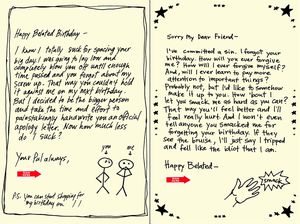 Happy Belated Birthday—
I know I totally suck for spacing your
big day. I was going to lay low and
completely blow you off until enough
time passed and you forgot about my
screw up. That way you couldn't hold
it against me on my next birthday.
But I decided to be the bigger person
and take the time and effort to
painstakingly handwrite you an official
apology letter. Now how much less
do I suck?
Your Pal always,
you
me
P.S. You can start shopping for
my birthday on / /
Sorry My Dear Friend—
I've committed a sin. I forgot your
birthday. How will you ever forgive
me? How will I ever forgive myself?
And, will I ever learn to pay more
attention to important things?
Probably not, but I'd like to somehow
make it up to you. How 'bout I
let you smack me as hard as you can?
That way you'll feel better and I'll
feel really hurt. And I won't even
tell anyone you smacked me for
forgetting your birthday. If they
see the bruise, I'll just say I tripped
and fell like the idiot that I am.
Happy Belated—
smack